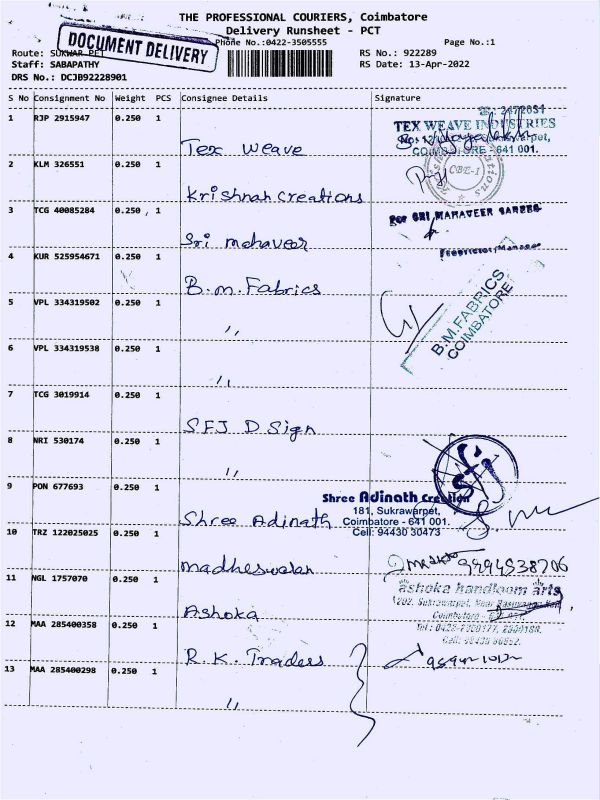 THE PROFESSIONAL COURIERS, Coimbatore
Delivery Runsheet - PCT
DOCUMENT DELIVERY
Phone No.:0422-3505555
Page No.:1
Route: SUKWAR PET
RS No.: 922289
Staff: SABAPATHY
RS Date: 13-Apr-2022
DRS No.: DCJB92228901
S No Consignment No Weight PCS Consignee Details Signature
1 RJP 2915947 0.250 1 Tex Weave
TEX WEAVE INDUSTRIES
641 001.
2 KLM 326551 0.250 1 Krishnah Creations
CBE-1
3 TCG 40085284 0.250 1 Sri mahaveer
For SRI MAHAVEER SAREES
Proprietor/Manager
4 KUR 525954671 0.250 1 B.m. Fabrics
B.M.FABRICS
COIMBATORE
5 VPL 334319502 0.250 1 "
6 VPL 334319538 0.250 1 "
7 TCG 3019914 0.250 1 SFJ D Sign
8 NRI 530174 0.250 1 "
9 PON 677693 0.250 1 Shree Adinath
Shree Adinath Creation
181, Sukrawarpet,
Coimbatore - 641 001.
Cell: 94430 30473
10 TRZ 122025025 0.250 1 madheswaran
11 NGL 1757070 0.250 1 Ashoka
ashoka handloom arts
12 MAA 285400358 0.250 1 R.K. Traders
13 MAA 285400298 0.250 1 "